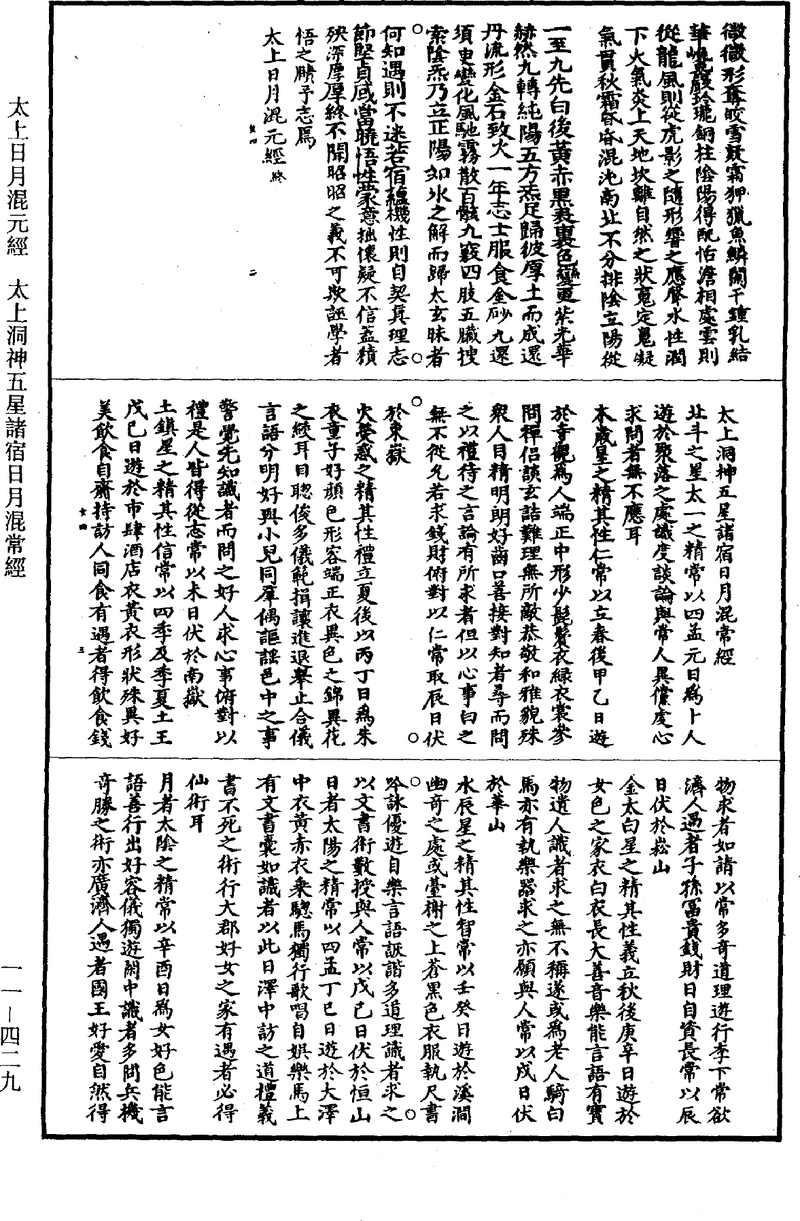 微微形奪皎雪皷霜狎獵魚鱗開千鍾乳結
華巉巖玲瓏銅柱陰陽得既怡澹相處雲則
從龍風則從虎影之隨形響之應聲水性潤
下火氣炎上天地坎離自然之狀䰟定䰟凝
氣貫秋霜昏昏混沌南北不分排陰立陽從
一至九先白後黃赤黑表裏色變更紫光華
赫然九轉純陽五方炁足歸彼厚土而成還
丹流形金石致火一年志士服食金砂九還
須臾變化風馳霧散百骸九竅四肢五臟搜
索陰炁乃立正陽如氷之解而歸太玄昧者
何知遇則不迷若宿蘊機性則自契真理志
節堅貞咸當曉悟性蒙意拙懷疑不信蓋積
殃深厚厚終不開昭昭之義不可欺誣學者
悟之勝予志焉
太上日月混元經 終
太上洞神五星諸宿日月混常經
北斗之星太一之精常以四孟元日為卜人
遊於聚落之處識度談論與常人異儻虔心
求問者無不應耳
木歲星之精其性仁常以立春後甲乙日遊
於寺觀為人端正中形少髭鬢衣綠衣裳參
問禪侶談玄詰難理無所敵恭敬和雅貌殊
衆人目精明朗好齒口善接對知者尋而問
之以禮待之言論有所求者但以心事白之
無不從允若求錢財俯對以仁常取辰日伏
於東嶽
火熒惑之精其性禮立夏後以丙丁日為朱
衣童子好顏色形容端正衣異色之錦異花
之綾耳目聰俊多儀範揖讓進退舉止合儀
言語分明好與小兒同羣偶謳謠邑中之事
警覺先知識者而問之好人求心事俯對以
禮是人皆得從志常以未日伏於南嶽
土鎮星之精其性信常以四季及季夏土王
戊巳日遊於市肆酒店衣黃衣形狀殊異好
美飲食自齋持訪人同食有遇者得飲食錢
物求者如請以常多奇道理遊行李下常欲
濟人遇者子孫冨貴錢財日自資長常以辰
日伏於嵩山
金太白星之精其性義立秋後庚辛日遊於
女色之家衣白衣長大善音樂能言語有寳
物遺人識者求之無不稱遂或為老人騎白
馬亦有執樂器求之亦願與人常以戌日伏
於華山
水辰星之精其性智常以壬癸日遊於溪澗
幽奇之處或臺榭之上蒼黑色衣服執尺書
吟詠優遊自樂言語詼諧多追理識者求之
以文書術數授與人常以戊巳日伏於恒山
日者太陽之精常以四孟丁巳日遊於大澤
中衣黃赤衣乘驄馬獨行歌唱自娯樂馬上
有文書囊如識者以此日澤中訪之道禮義
書不死之術行大郡好女之家有遇者必得
仙術耳
月者太陰之精常以辛酉日為女好色能言
語善行出好容儀獨遊閙中識者多問兵機
奇勝之術亦廣濟人遇者國王好愛自然得
太上日月混元經 太上洞神五星諸宿日月混常經
一一－四二九